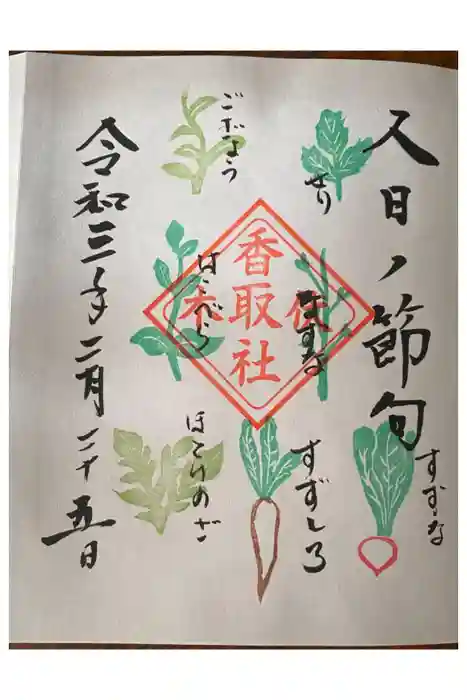 人日ノ節句
せり
なずな
すずな
ごぎょう
はこべら
すずしろ
ほとけのざ
香取社
令和三年二月二十五日